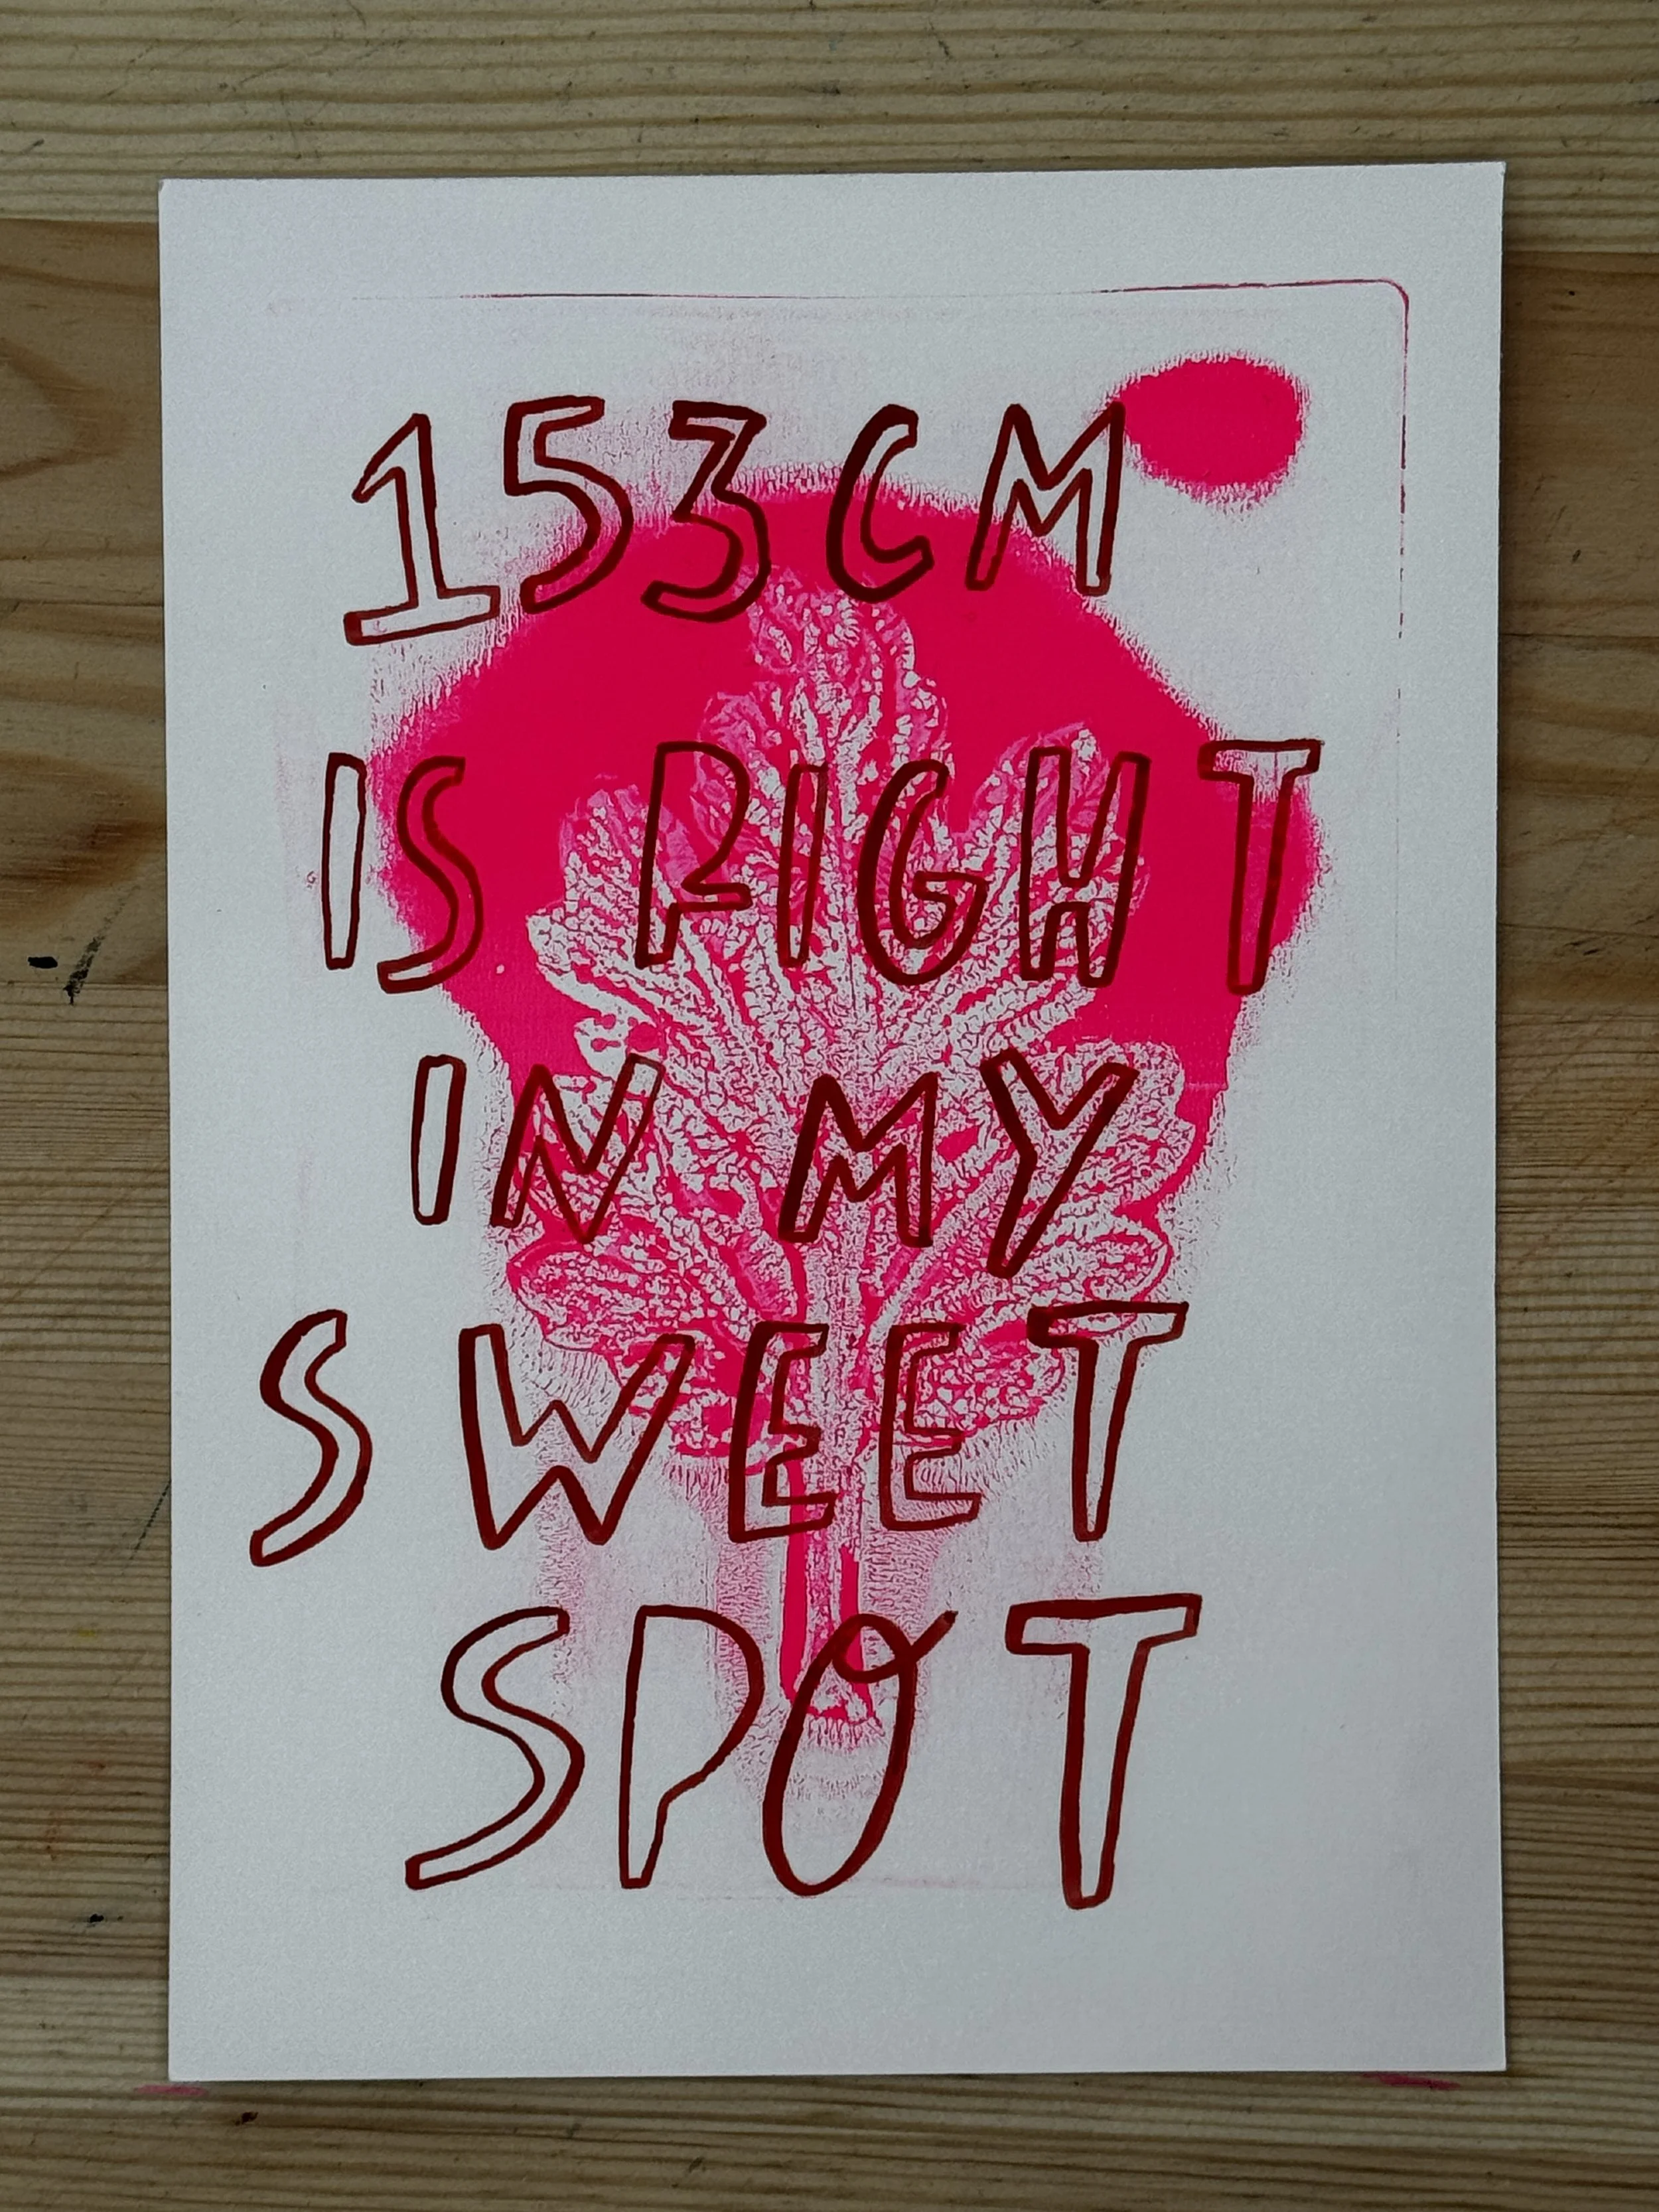 153CM
IS RIGHT
IN MY
SWEET
SPOT